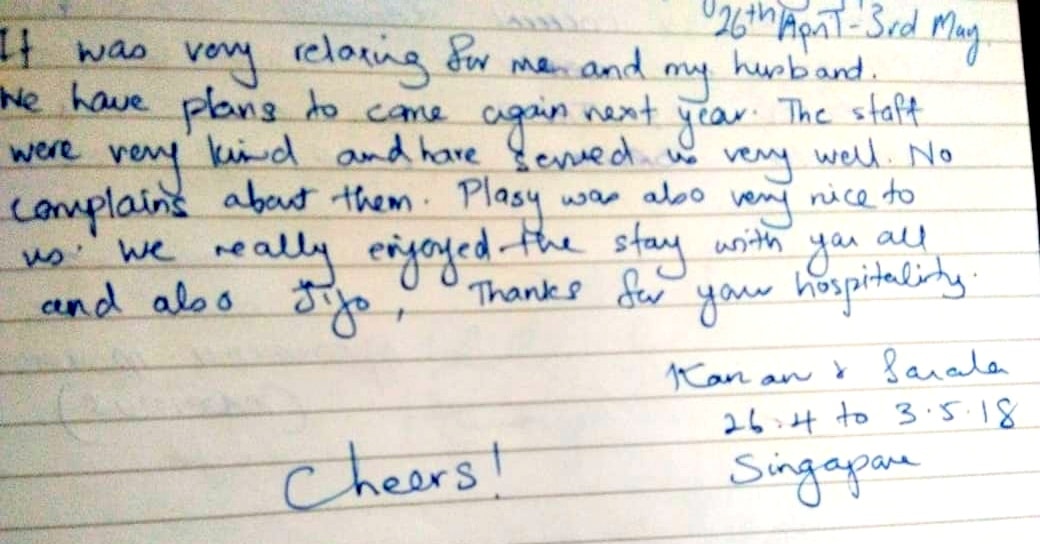 26th April - 3rd May
It was very relaxing for me and my husband.
We have plans to come again next year. The staff
were very kind and have served us very well. No
complains about them. Plasy was also very nice to
us. We really enjoyed the stay with you all
and also Jijo, Thanks for your hospitality.
Kanan & Sarala
26.4 to 3.5.18
Singapore
Cheers!